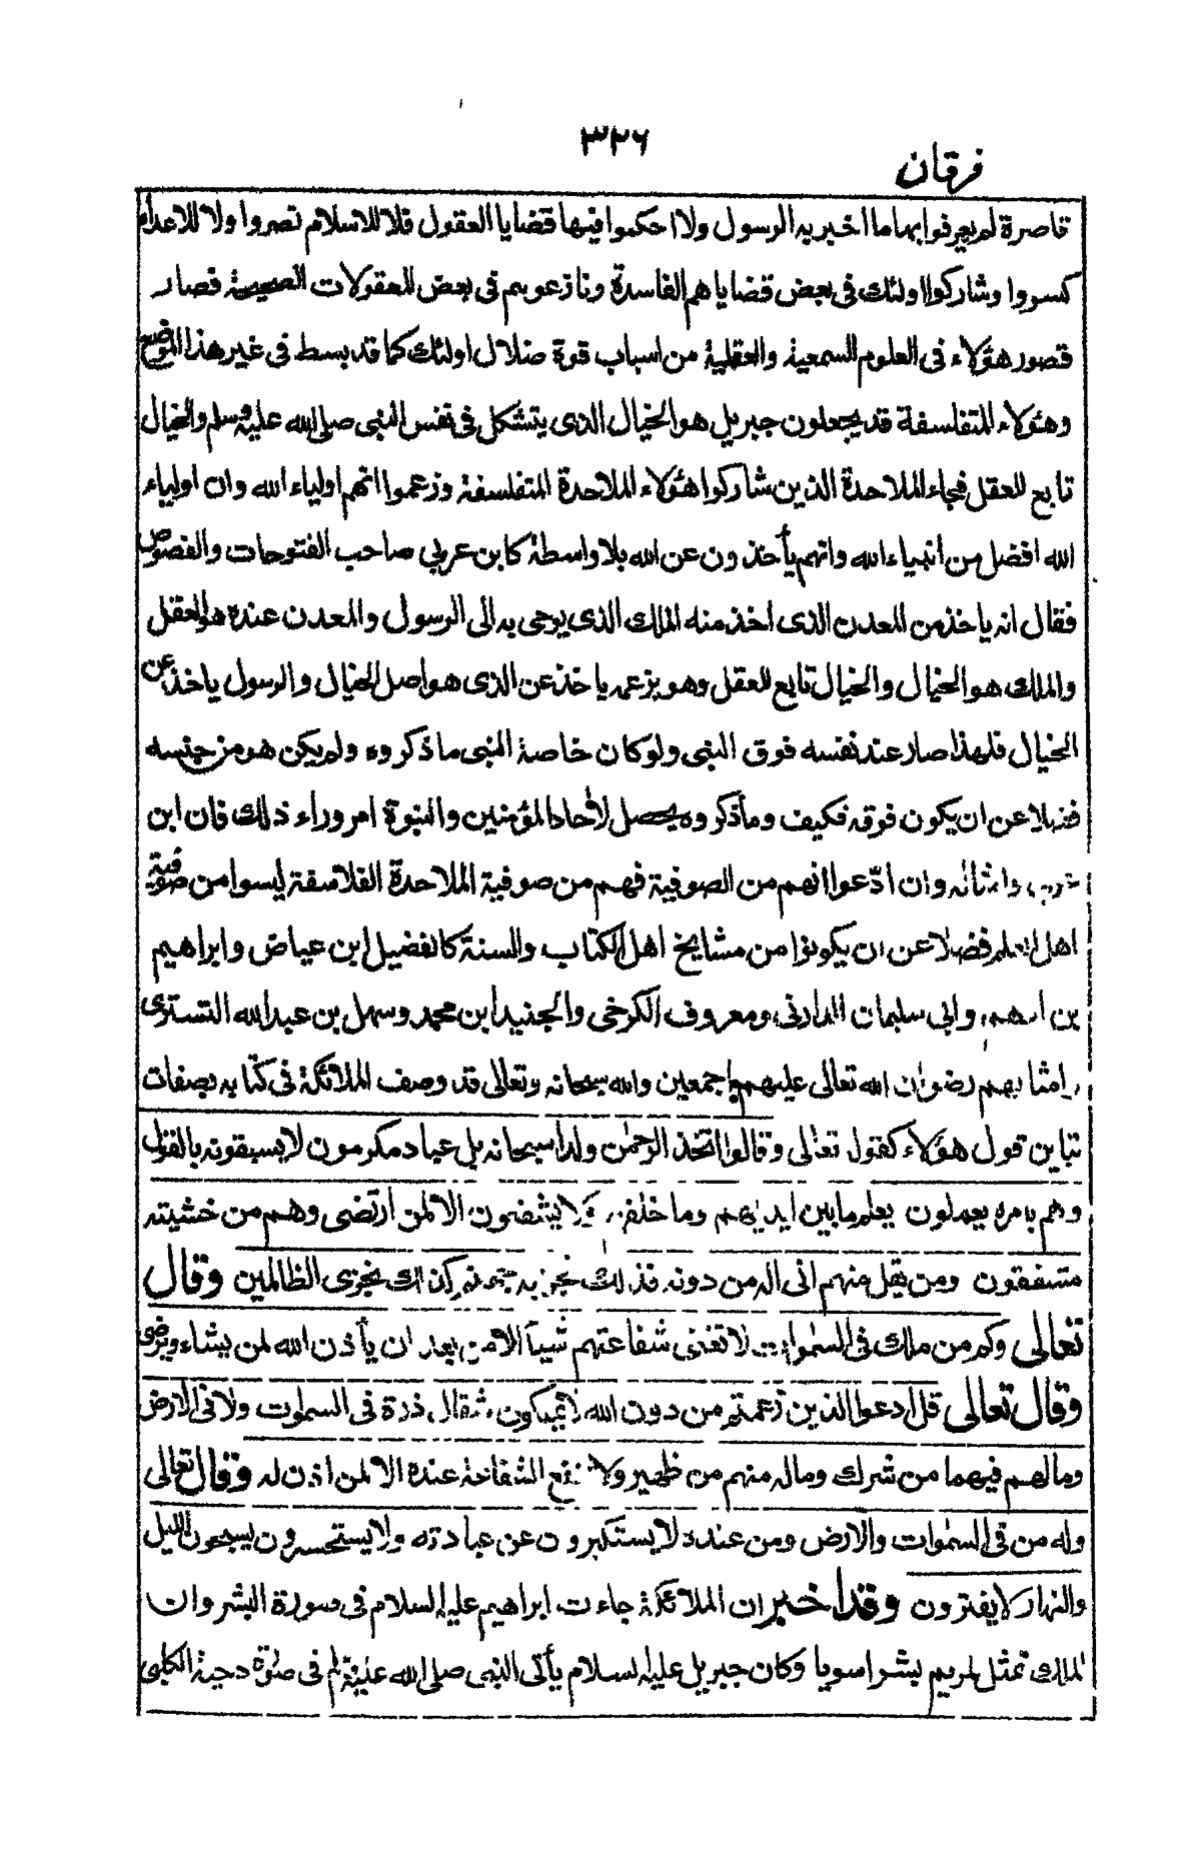 ٣٢٦
فرقان
قاصرة لم يعرفوا بها ما اخبر به الرسول ولا احكموا فيها قضايا العقول فلا للاسلام نصروا ولا للاعداء
كسروا وشاركوا اولئك فى بعض قضاياهم الفاسدة ونازعوهم فى بعض المعقولات الصحيحة فصار
قصور هؤلاء فى العلوم السمعية والعقلية من اسباب قوة ضلال اولئك كما قد بسط فى غير هذا الموضع
وهؤلاء المتفلسفة قد يجعلون جبريل هو الخيال الذى يتشكل فى نفس النبى صلى الله عليه وسلم والخيال
تابع للعقل فجاء الملاحدة الذين شاركوا هؤلاء الملاحدة المتفلسفة وزعموا انهم اولياء الله وان اولياء
الله افضل من انبياء الله وانهم يأخذون عن الله بلا واسطة كابن عربي صاحب الفتوحات والفصوص
فقال انه ياخذ من المعدن الذى اخذ منه الملك الذى يوحى به الى الرسول والمعدن عنده هو العقل
والملك هو الخيال والخيال تابع للعقل وهو بزعمه ياخذ عن الذى هو اصل الخيال والرسول ياخذ عن
الخيال فلهذا صار عند نفسه فوق النبى ولو كان خاصة النبى ما ذكروه ولم يكن هو من جنسه
فضلا عن ان يكون فوقه فكيف وما ذكروه يحصل لآحاد المؤمنين والنبوة امر وراء ذلك فان ابن
عربى وامثاله وان ادّعوا انهم من الصوفية فهم من صوفية الملاحدة الفلاسفة ليسوا من صوفية
اهل العلم فضلا عن ان يكونوا من مشايخ اهل الكتاب والسنة كالفضيل ابن عياض وابراهيم
بن ادهم وابى سليمان الدارنى ومعروف الكرخى والجنيد ابن محمد وسهل بن عبد الله التسترى
وامثالهم رضوان الله تعالى عليهم اجمعين والله سبحانه وتعالى قد وصف الملائكة فى كتابه بصفات
تباين قول هؤلاء كقوله تعالى وقالوا اتخذ الرحمٰن ولدا سبحانه بل عباد مكرمون لا يسبقونه بالقول
وهم بامره يعملون يعلم ما بين ايديهم وما خلفهم ولا يشفعون الا لمن ارتضى وهم من خشيته
مشفقون ومن يقل منهم انى اله من دونه فذلك نجزيه جهنم كذلك نجزى الظالمين وقال
تعالى وكم من ملك فى السمٰوات لا تغنى شفاعتهم شيأ الا من بعد ان يأذن الله لمن يشاء ويرضى
وقال تعالى قل ادعوا الذين زعمتم من دون الله لا يملكون مثقال ذرة فى السمٰوات ولا فى الارض
وما لهم فيهما من شرك وماله منهم من ظهير ولا تنفع الشفاعة عنده الا لمن اذن له وقال تعالى
وله من فى السمٰوات والارض ومن عنده لا يستكبرون عن عبادته ولا يستحسرون يسبحون الليل
والنهار لا يفترون وقد اخبر ان الملائكة جاءت ابراهيم عليه السلام فى صورة البشر وان
الملك تمثل لمريم بشرا سويا وكان جبريل عليه السلام يأتى النبى صلى الله عليه وسلم فى صورة دحية الكلبى